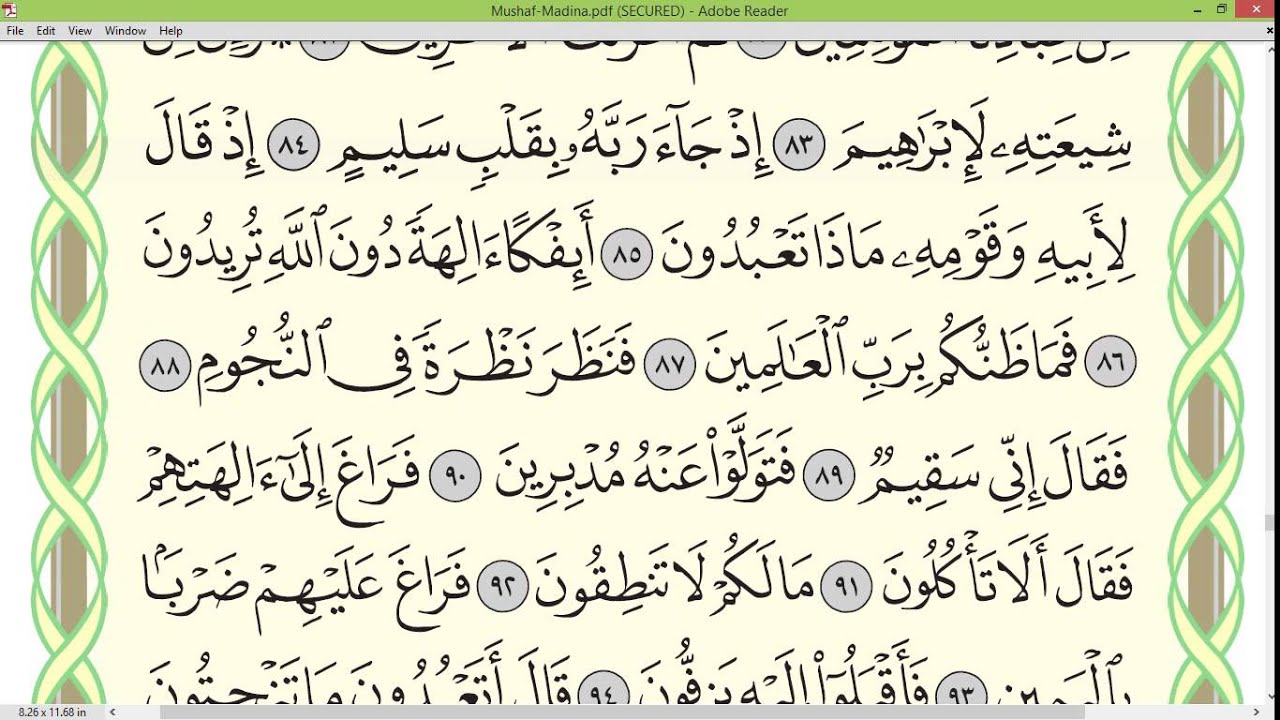 Mushaf-Madina.pdf (SECURED) - Adobe Reader
File Edit View Window Help
شِيعَتِهِۦ لَإِبْرَٰهِيمَ ٨٣ إِذْ جَآءَ رَبَّهُۥ بِقَلْبٍۢ سَلِيمٍ ٨٤ إِذْ قَالَ
لِأَبِيهِ وَقَوْمِهِۦ مَاذَا تَعْبُدُونَ ٨٥ أَئِفْكًا ءَالِهَةً دُونَ ٱللَّهِ تُرِيدُونَ
٨٦ فَمَا ظَنُّكُم بِرَبِّ ٱلْعَٰلَمِينَ ٨٧ فَنَظَرَ نَظْرَةً فِى ٱلنُّجُومِ ٨٨
فَقَالَ إِنِّى سَقِيمٌ ٨٩ فَتَوَلَّوْا۟ عَنْهُ مُدْبِرِينَ ٩٠ فَرَاغَ إِلَىٰٓ ءَالِهَتِهِمْ
فَقَالَ أَلَا تَأْكُلُونَ ٩١ مَا لَكُمْ لَا تَنطِقُونَ ٩٢ فَرَاغَ عَلَيْهِمْ ضَرْبًۢا
بِٱلْيَمِينِ ٩٣ فَأَقْبَلُوٓا۟ إِلَيْهِ يَزِفُّونَ ٩٤ قَالَ أَتَعْبُدُونَ مَا تَنْحِتُونَ
8.26 x 11.68 in